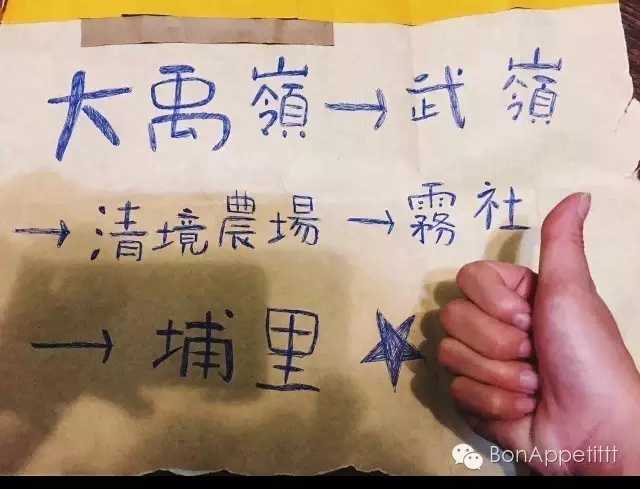 大禹嶺→武嶺
→清境農場→霧社
→埔里★
BonAppetittt